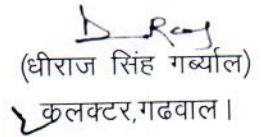 (धीराज सिंह गर्ब्याल)
कलक्टर,गढवाल।